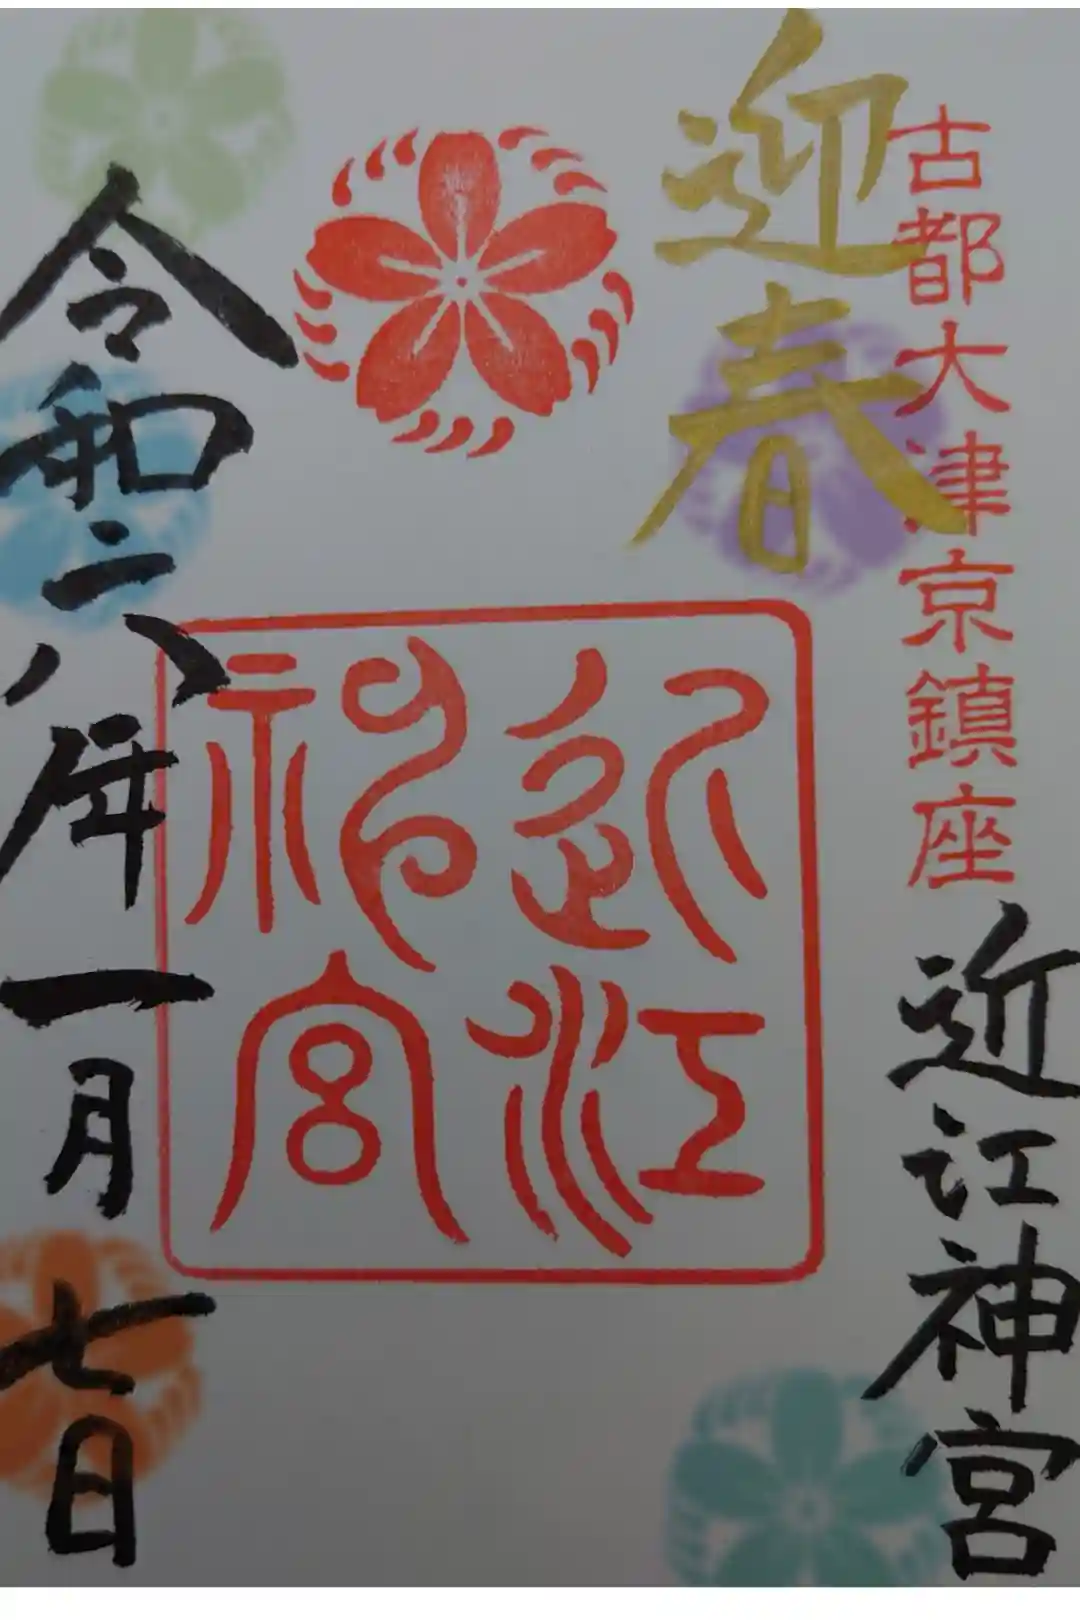 古都大津京鎮座
近江神宮
迎春
近江
神宮
令和六年一月七日